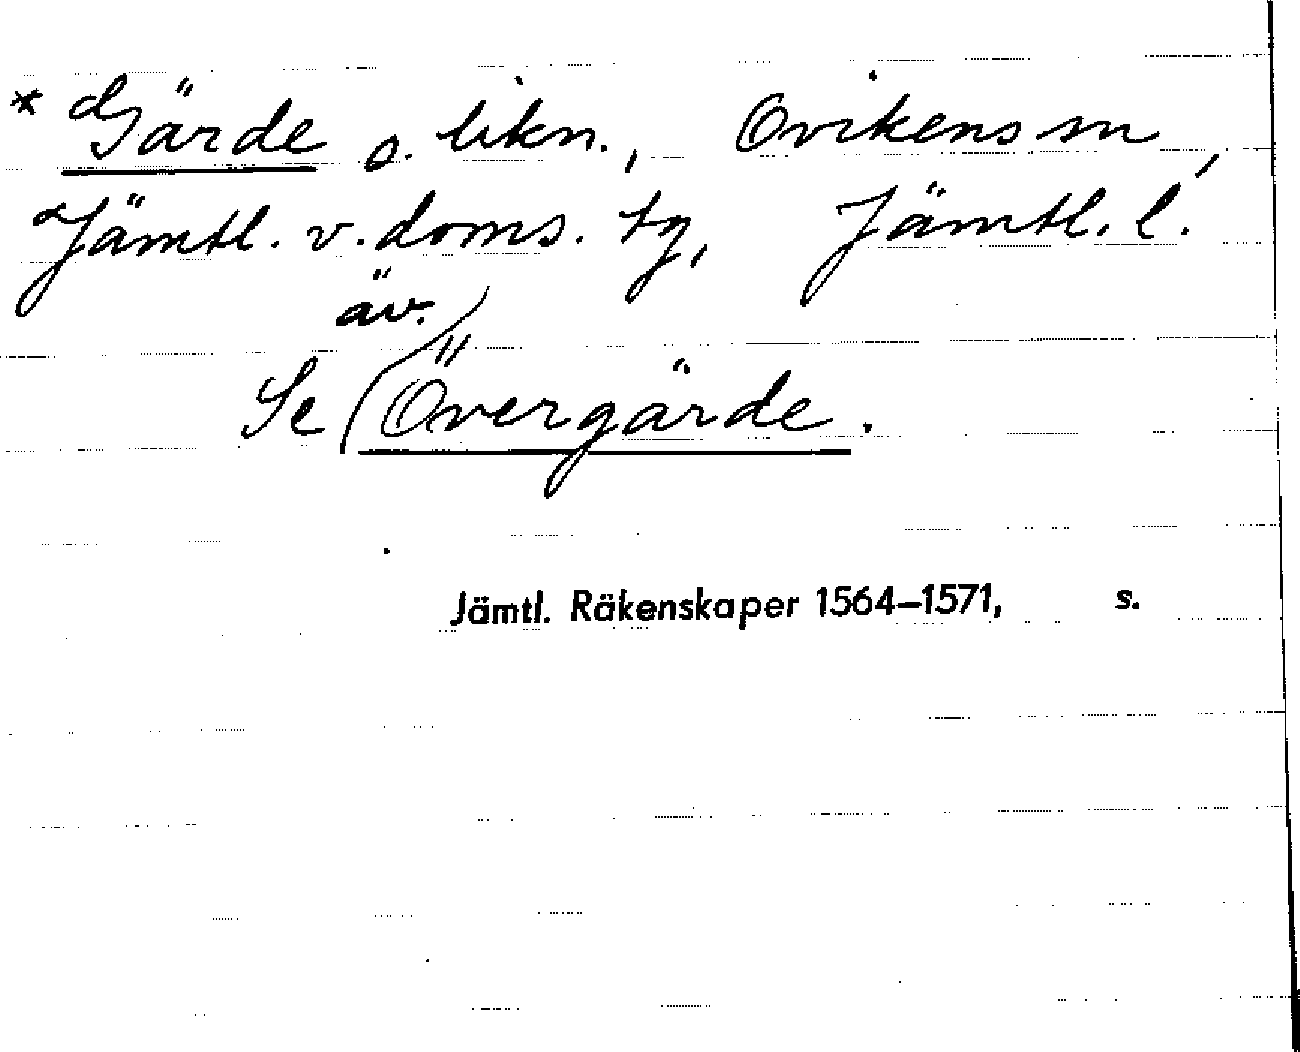 * Gärde o. likn., Ovikens sn,
Jämtl. v. doms. tg, Jämtl. l.
Se äv. Övergärde.
Jämtl. Räkenskaper 1564–1571, s.